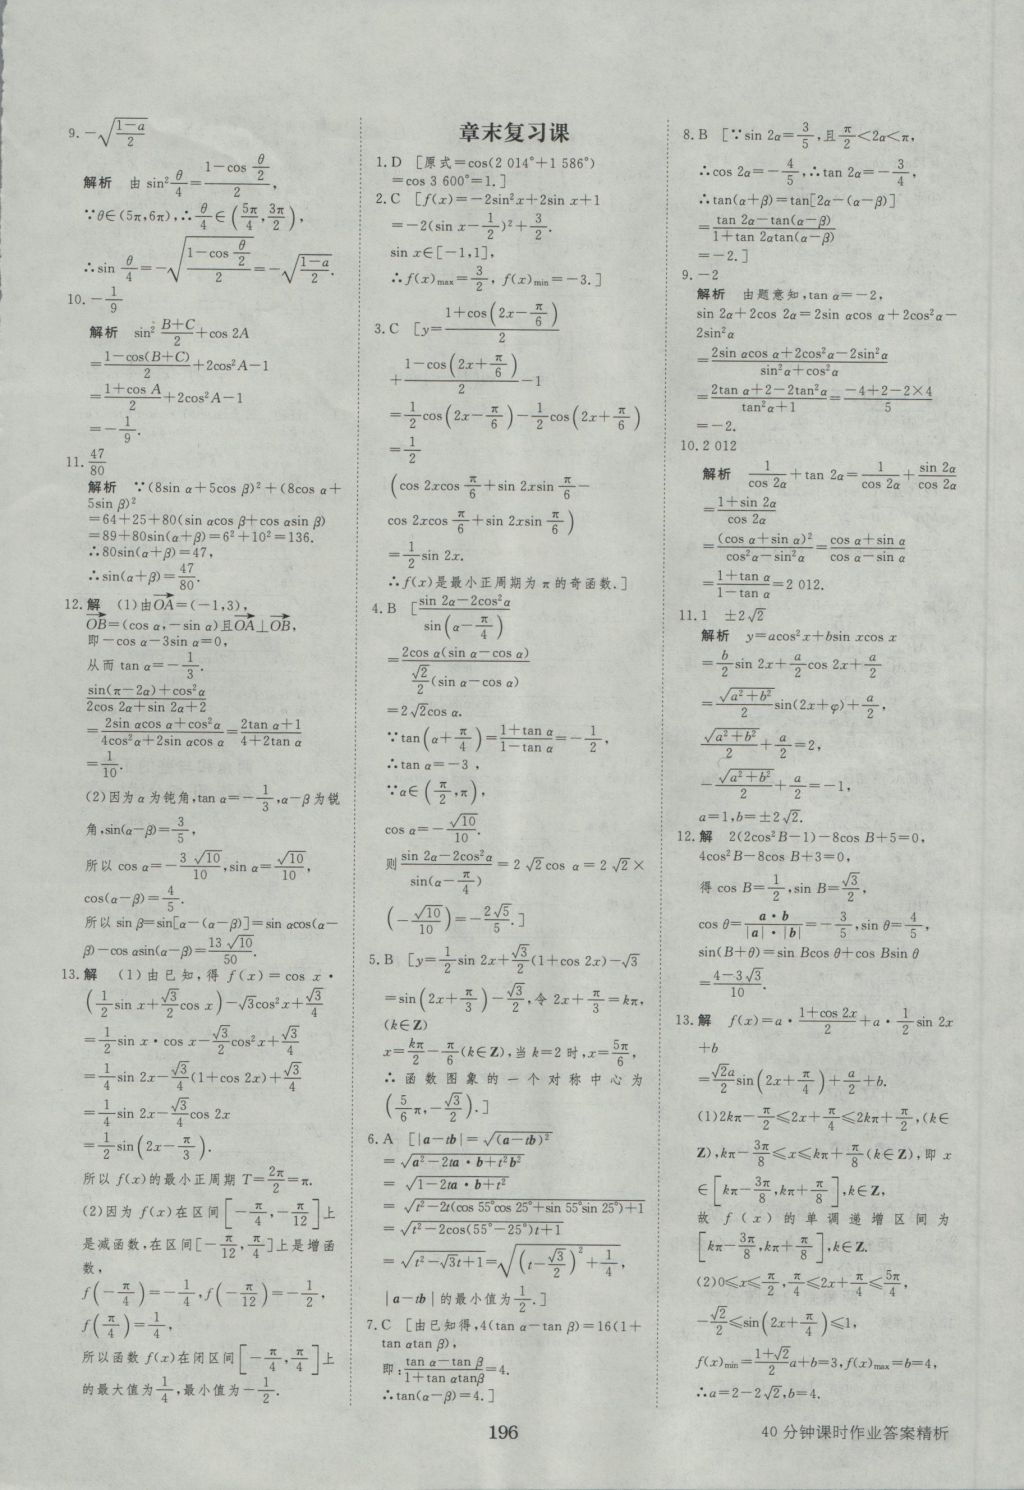 9. -√((1-a)/2)
解析 由 sin²(θ/4)=(1-cos(θ/2))/2,
∵θ∈(5π,6π),∴θ/4∈(5π/4,3π/2),
∴sin(θ/4)=-√((1-cos(θ/2))/2)=-√((1-a)/2).
10. -1/9
解析 sin²((B+C)/2)+cos 2A
=(1-cos(B+C))/2+2cos²A-1
=(1+cos A)/2+2cos²A-1
=-1/9.
11. 47/80
解析 ∵(8sin α+5cos β)²+(8cos α+
5sin β)²
=64+25+80(sin αcos β+cos αsin β)
=89+80sin(α+β)=6²+10²=136.
∴80sin(α+β)=47,
∴sin(α+β)=47/80.
12. 解 (1)由OA→=(-1,3),
OB→=(cos α,-sin α)且OA→⊥OB→,
即-cos α-3sin α=0,
从而 tan α=-1/3.
(sin(π-2α)+cos²α)/(2cos 2α+sin 2α+2)
=(2sin αcos α+cos²α)/(4cos²α+2sin αcos α)=(2tan α+1)/(4+2tan α)
=1/10.
(2)因为α为钝角,tan α=-1/3,α-β为锐
角,sin(α-β)=3/5,
所以 cos α=-3√10/10,sin α=√10/10,
cos(α-β)=4/5.
所以 sin β=sin[α-(α-β)]=sin αcos(α-
β)-cos αsin(α-β)=13√10/50.
13. 解 (1)由已知,得 f(x)=cos x·
(1/2 sin x+√3/2 cos x)-√3cos²x+√3/4
=1/2 sin x·cos x-√3/2 cos²x+√3/4
=1/4 sin 2x-√3/4(1+cos 2x)+√3/4
=1/4 sin 2x-√3/4 cos 2x
=1/2 sin(2x-π/3).
所以 f(x)的最小正周期 T=2π/2=π.
(2)因为 f(x)在区间[-π/4,-π/12]上
是减函数,在区间[-π/12,π/4]上是增函
数,
f(-π/4)=-1/4,f(-π/12)=-1/2,
f(π/4)=1/4,
所以函数 f(x)在闭区间[-π/4,π/4]上
的最大值为1/4,最小值为-1/2.
章末复习课
1. D [原式=cos(2 014°+1 586°)
=cos 3 600°=1.]
2. C [f(x)=-2sin²x+2sin x+1
=-2(sin x-1/2)²+3/2.
sin x∈[-1,1],
∴f(x)max=3/2, f(x)min=-3.]
3. C [y=(1+cos(2x-π/6))/2
+(1-cos(2x+π/6))/2-1
=1/2 cos(2x-π/6)-1/2 cos(2x+π/6)
=1/2
(cos 2xcos π/6+sin 2xsin π/6-
cos 2xcos π/6+sin 2xsin π/6)
=1/2 sin 2x.
∴f(x)是最小正周期为π的奇函数.]
4. B [(sin 2α-2cos²α)/sin(α-π/4)
=2cos α(sin α-cos α)/(√2/2(sin α-cos α))
=2√2cos α.
∵tan(α+π/4)=(1+tan α)/(1-tan α)=-1/2,
∴tan α=-3 ,
∵α∈(π/2,π),
cos α=-√10/10.
则(sin 2α-2cos²α)/sin(α-π/4)=2√2cos α=2√2×
(-√10/10)=-2√5/5.]
5. B [y=1/2 sin 2x+√3/2(1+cos 2x)-√3
=sin(2x+π/3)-√3/2,令 2x+π/3=kπ,
(k∈Z)
x=kπ/2-π/6(k∈Z),当 k=2 时,x=5π/6,
∴函数图象的一个对称中心为
(5/6 π,-√3/2).]
6. A [|a-tb|=√((a-tb)²)
=√(a²-2ta·b+t²b²)
=√(1-2ta·b+t²)
=√(t²-2t(cos 55°cos 25°+sin 55°sin 25°)+1)
=√(t²-2cos(55°-25°)t+1)
=√(t²-√3t+1)=√((t-√3/2)²+1/4),
|a-tb|的最小值为1/2.]
7. C [由已知得,4(tan α-tan β)=16(1+
tan αtan β),
即:(tan α-tan β)/(1+tan αtanβ)=4.
∴tan(α-β)=4.]
8. B [∵sin 2α=3/5,且π/2<2α<π,
∴cos 2α=-4/5,∴tan 2α=-3/4,
∴tan(α+β)=tan[2α-(α-β)]
=(tan 2α-tan(α-β))/(1+tan 2αtan(α-β))
=-2.]
9. -2
解析 由题意知,tan α=-2,
sin 2α+2cos 2α=2sin αcos α+2cos²α-
2sin²α
=(2sin αcos α+2cos²α-2sin²α)/(sin²α+cos²α)
=(2tan α+2-2tan²α)/(tan²α+1)=(-4+2-2×4)/5
=-2.
10. 2 012
解析 1/cos 2α+tan 2α=1/cos 2α+sin 2α/cos 2α
=(1+sin 2α)/cos 2α
=(cos α+sin α)²/(cos²α-sin²α)=(cos α+sin α)/(cos α-sin α)
=(1+tan α)/(1-tan α)=2 012.
11. 1 ±2√2
解析 y=acos²x+bsin xcos x
=b/2 sin 2x+a/2 cos 2x+a/2
=√(a²+b²)/2 sin(2x+φ)+a/2,
√(a²+b²)/2+a/2=2,
-√(a²+b²)/2+a/2=-1,
a=1,b=±2√2.
12. 解 2(2cos²B-1)-8cos B+5=0,
4cos²B-8cos B+3=0,
得 cos B=1/2,sin B=√3/2,
cos θ=a·b/(|a|·|b|)=-3/5,sin θ=4/5,
sin(B+θ)=sin Bcos θ+cos Bsin θ
=(4-3√3)/10.
13. 解 f(x)=a·(1+cos 2x)/2+a·1/2 sin 2x
+b
=√2a/2 sin(2x+π/4)+a/2+b.
(1)2kπ-π/2≤2x+π/4≤2kπ+π/2,(k∈
Z),kπ-3π/8≤x≤kπ+π/8(k∈Z),即 x
∈[kπ-3π/8,kπ+π/8],k∈Z,
故 f(x)的单调递增区间为
[kπ-3π/8,kπ+π/8],k∈Z.
(2)0≤x≤π/2,π/4≤2x+π/4≤5π/4,
-√2/2≤sin(2x+π/4)≤1,
f(x)min=(1+√2)/2 a+b=3,f(x)max=b=4,
∴a=2-2√2,b=4.
196
40分钟课时作业答案精析